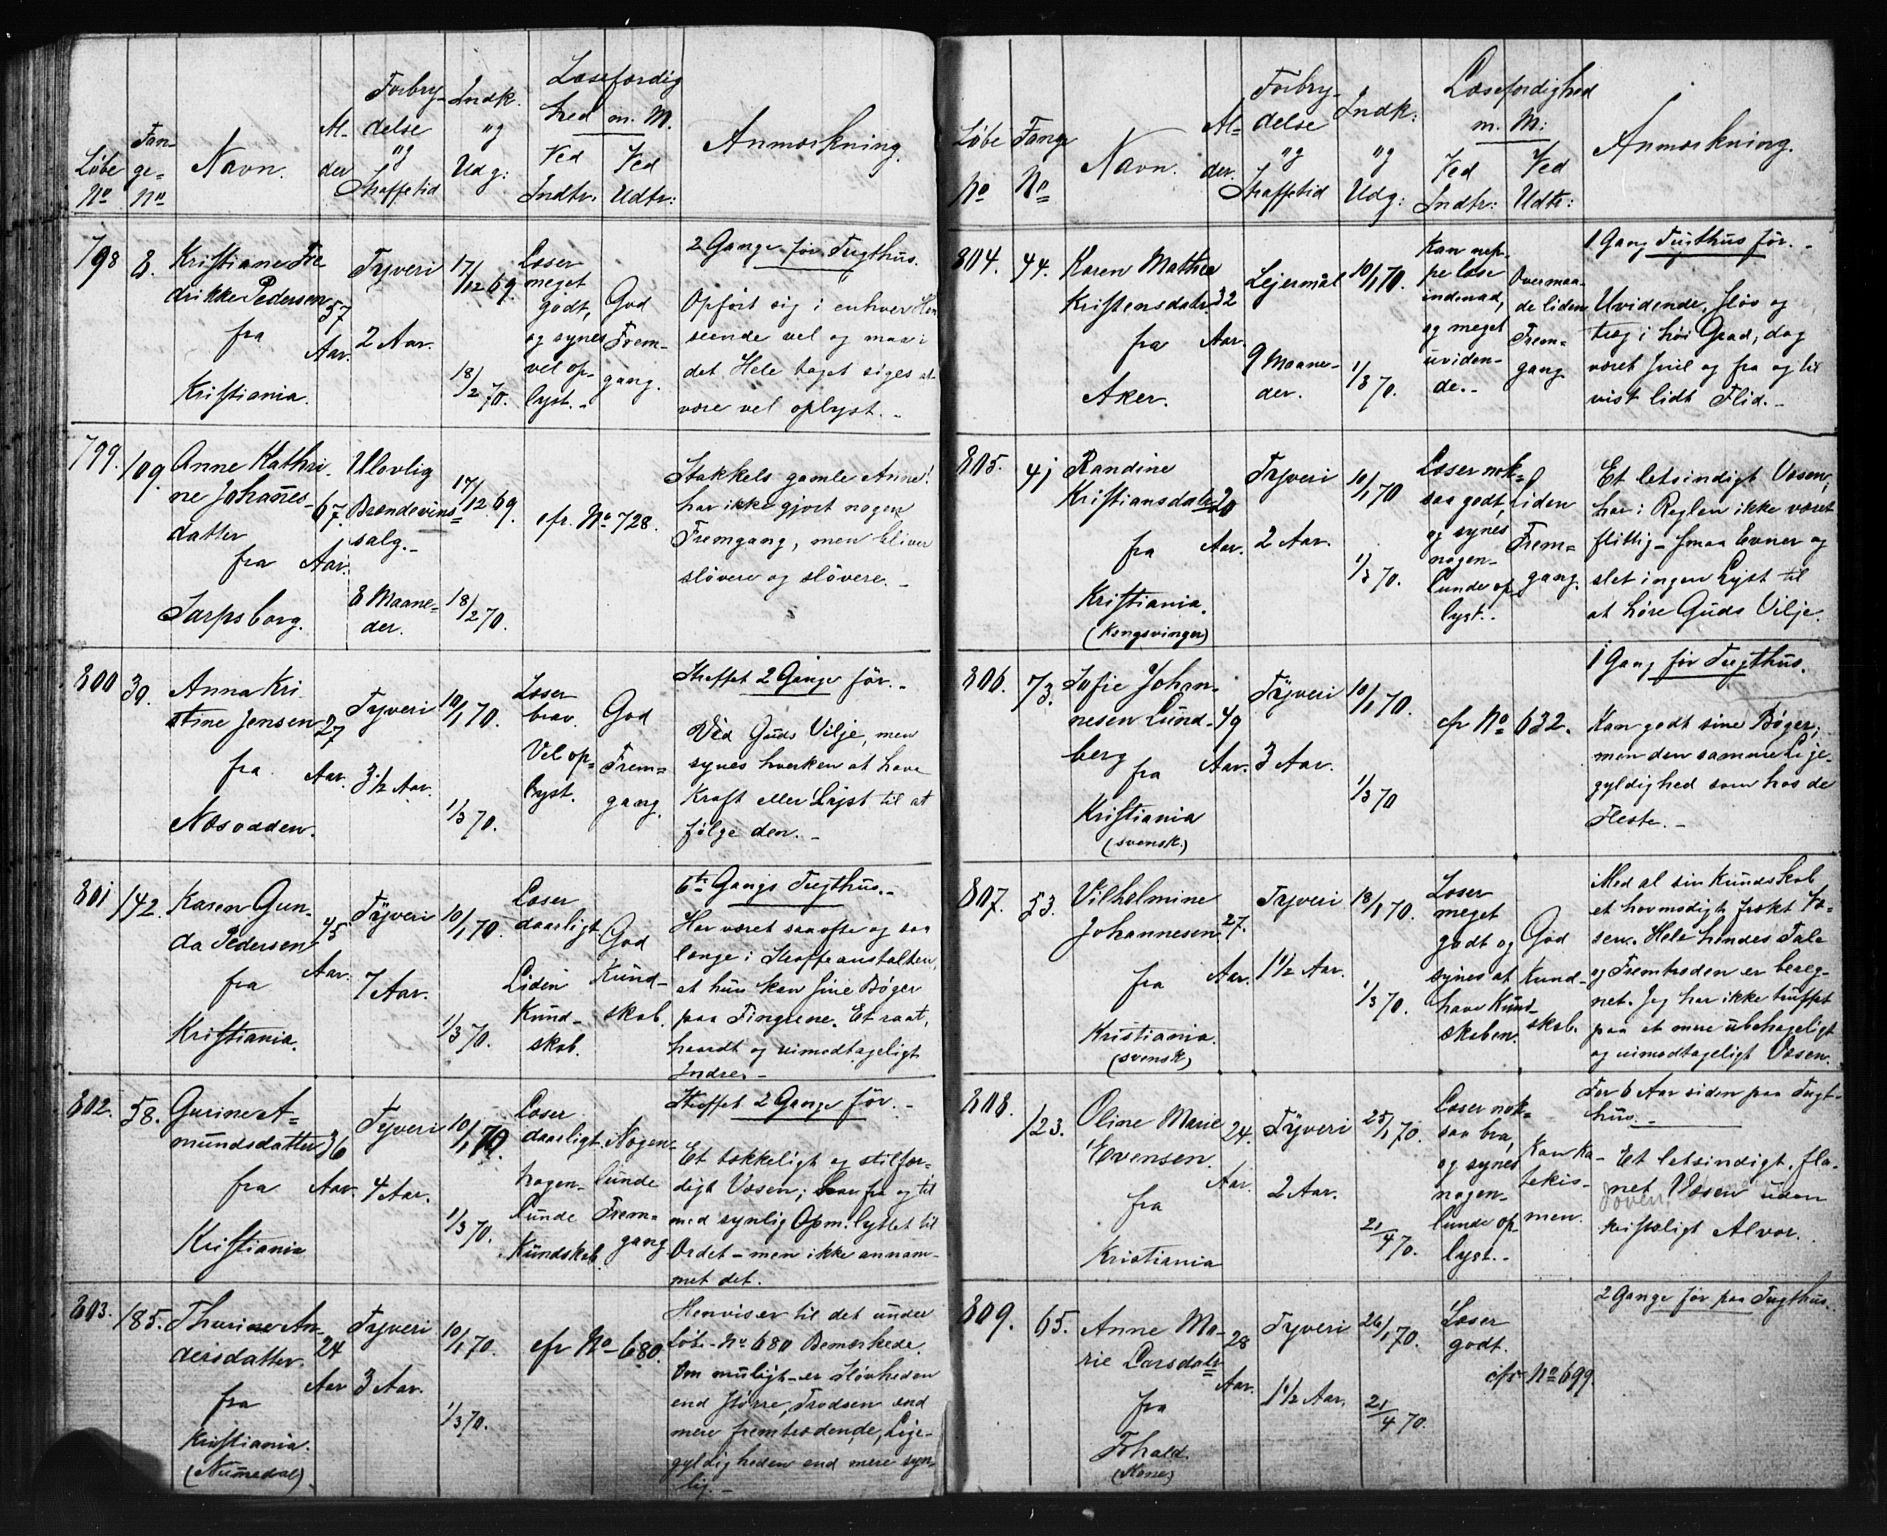 Løbe No
Fan-
ge-
No
Navn.
Al-
der
Forbry-
delse
og
Straffetid
Indk.
og
Udg:
Læsefærdig
hed m. M.
Ved
Indtr:
Ved
Udtr:
Anmærkning.
798
8.
Kristiane Fre
drikke Pedersen
fra
Kristiania.
57
Aar.
Tyveri
2 Aar.
17/12 69.
18/2 70.
Læser
meget
godt,
og synes
vel op-
lyst. -
God
Frem-
gang.
2 Gange før Tugthus.
Opført sig i enhver Hen
seende vel og maa i
det Hele taget siges at
være vel oplyst. -
799.
109.
Anne Kathri
ne Johannes-
datter
fra
Sarpsborg.
67.
Aar.
Ulovlig
Brændevins=
salg. -
8 Maane=
der.
17/12 69.
18/2 70.
cfr. No 728.
Stakkels gamle Anne!
har ikke gjort nogen
Fremgang, men bliver
sløvere og sløvere. -
800
39.
Anna Kri
stine Jensen
fra
Næsodden.
27
Aar.
Tyveri
3 1/2 Aar.
10/1 70.
1/3 70.
Læser
brav.
Vel op=
lyst.
God
Frem=
gang.
Straffet 2 Gange før. -
Ved Guds Vilje, men
synes hverken at have
Kraft eller Lyst til at
følge den. -
801
142.
Karen Gun-
da Pedersen
fra
Kristiania.
45
Aar.
Tyveri
7 Aar.
10/1 70.
1/3 70.
Læser
daarligt
Liden
Kund-
skab.
God
Kund-
skab.
6te Gangs Tugthus. -
Har været saa ofte og saa
længe i Straffeanstalten,
at hun kan sine Bøger
paa Fingrene. Et raat,
haardt og uimodtageligt
Indre. -
802.
58.
Gurine A-
mundsdatter
fra
Kristiania
36
Aar.
Tyveri
4 Aar.
10/1 70.
1/3 70.
Læser
daarligt.
Nogen-
lunde
Kundskab.
Nogen-
lunde
Frem-
gang
Straffet 2 Gange før. -
Et tækkeligt og stilfær-
digt Væsen; har fra og til
med synlig Opm. lyttet til
Ordet - men ikke annam-
met det.
803.
185.
Thurine An-
dersdatter.
fra
Kristiania.
(Numedal).
24
Aar
Tyveri
3 Aar.
10/1 70.
1/3 70.
cfr No 680.
Henviser til det under
Løbe-No 680 Bemærkede.
Om muligt - er Sløvheden
end større, Trodsen end
mere fremtrædende, Lige-
gyldigheden end mere syn-
lig. -
Løbe
No
Fange
No
Navn.
Al=
der.
Forbry-
delse
og
Straffetid
Indk:
og
Udg:
Læsefærdighed
m. M:
Ved
Indtr:
Ved
Udtr:
Anmærkning.
804.
44.
Karen Mathea
Kristensdatr.
fra
Aker.
32
Aar.
Lejermål
9 Maane-
der.
10/1 70.
1/3 70.
Kan nep-
pe læse
indenad,
og meget
uviden-
de. -
Overmaa-
de liden
Frem=
gang
1 Gang Tugthus før. -
Uvidende, sløv og
træg i høi Grad, dog
været snil og fra og til
vist lidt Flid. -
805.
41
Randine
Kristiansdatr
fra
Kristiania.
(Kongsvinger)
20
Aar.
Tyveri
2 Aar.
10/1 70
1/3 70.
Læser nok-
saa godt,
og synes
nogen-
lunde op
lyst. -
Liden
Frem=
gang.
Et letsindigt Væsen,
har i Reglen ikke været
flittig - smaa Evner og
slet ingen Lyst til
at høre Guds Vilje.
806.
73.
Sofie Johan-
nesen Lund-
berg
fra
Kristiania
(svensk.)
49
Aar.
Tyveri
3 Aar.
10/1 70.
1/3 70
cfr No 632.
1 Gang før Tugthus.
Kan godt sine Bøger,
men den samme Lige-
gyldighed som hos de
Fleste. -
807.
53.
Vilhelmine
Johannesen
fra
Kristiania.
(svensk)
27.
Aar.
Tyveri
1 1/2 Aar.
18/1 70.
1/3 70.
Læser
meget
godt og
synes at
have Kund-
skaben.
God
Kund-
skab.
Med al sin Kundskab
et hovmodigt, frækt Væ-
sen. Hele hendes Tale
og Fremtræden er bereg-
net. Jeg har ikke truffet
paa et mere ubehageligt
og uimodtageligt Væsen.
808.
123.
Oline Marie
Evensen.
fra
Kristiania
24.
Aar.
Tyveri
2 Aar.
25/1 70.
21/4 70.
Læser nok=
saa bra,
og synes
nogen-
lunde op-
lyst. -
Kan Ka-
tekis-
men.
For 6 Aar siden paa Tugt-
hus. -
Et letsindigt, fla-
net Væsen uden
kristeligt Alvor.
809.
65.
Anne Ma-
rie Larsdatr
fra
Id
(Kone)
28
Aar.
Tyveri
1 1/2 Aar.
26/1 70.
21/4 70.
Læser
godt.
cfr No 699
2 Gange før paa Tugthus.